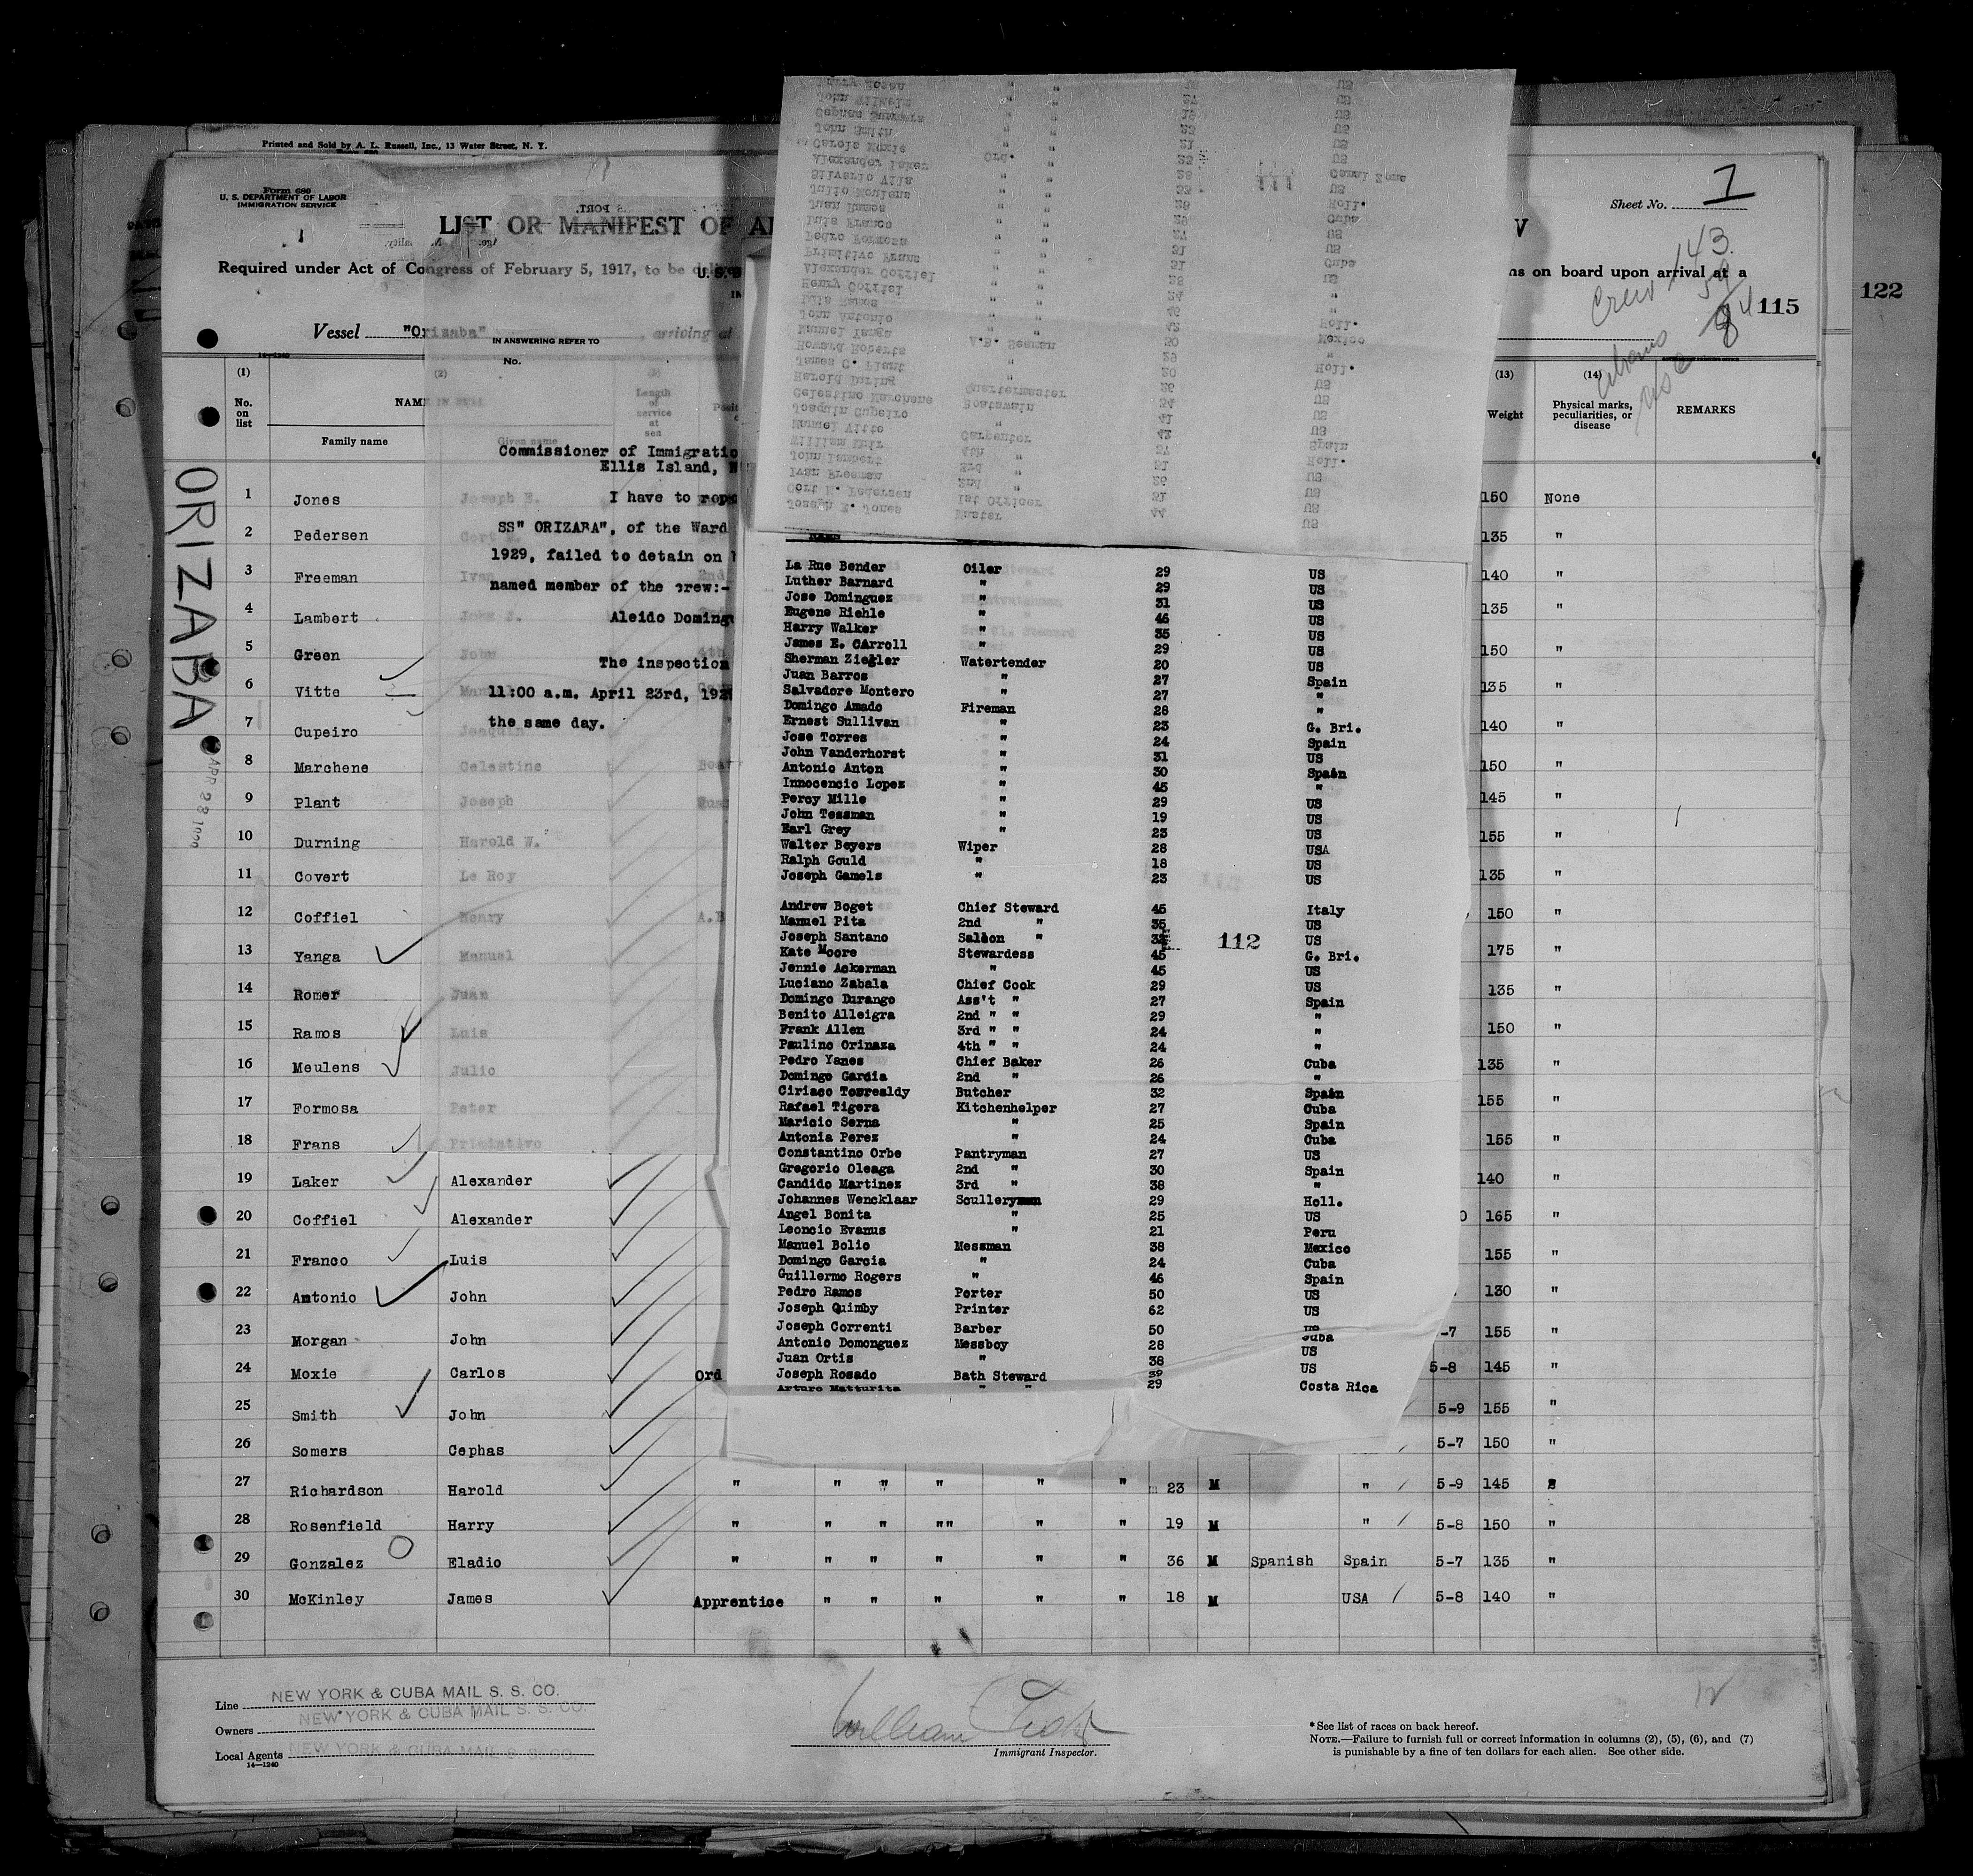 Printed and Sold by A. L. Russell, Inc., 13 Water Street, N. Y.
Form 680
U. S. DEPARTMENT OF LABOR
IMMIGRATION SERVICE
LIST OR MANIFEST OF
Sheet No. 1
Required under Act of Congress of February 5, 1917, to be
on board upon arrival at a
Crew 143
115
122
Vessel "Orizaba" arriving at
IN ANSWERING REFER TO
No.
(1) (2) (13) (14)
No. on list
NAME IN FULL
Family name
Given name
Length of service at sea
Weight
Physical marks, peculiarities, or disease
REMARKS
ORIZABA
Commissioner of Immigratio
Ellis Island,
I have to
SS" ORIZABA", of the Ward
1929, failed to detain on
named member of the crew:-
Aleido Doming
The inspection
11:00 a.m. April 23rd, 192
the same day.
1 Jones Joseph E. 150 None
2 Pedersen 135 "
3 Freeman Ivan 2nd 140 "
4 Lambert John J. 135 "
5 Green John 4th 150 "
6 Vitte 135 "
7 Cupeiro Joaquin 140 "
8 Marchene Celestine 150 "
9 Plant Joseph 145 "
10 Durning Harold W. 155 "
11 Covert Le Roy 135 "
12 Coffiel Henry A.B 150 "
13 Yanga Manuel 175 "
14 Romer Juan 135 "
15 Ramos Luis 150 "
16 Meulens Julio 135 "
17 Formosa Peter 155 "
18 Frans Primitivo 155 "
19 Laker Alexander 140 "
20 Coffiel Alexander 165 "
21 Franco Luis 155 "
22 Antonio John 130 "
23 Morgan John -7 155 "
24 Moxie Carlos Ord 5-8 145 "
25 Smith John 5-9 155 "
26 Somers Cephas 5-7 150 "
27 Richardson Harold " " " " " " 23 M " 5-9 145
28 Rosenfield Harry " " " "" " " 19 M " 5-8 150 "
29 Gonzalez Eladio " " " " " " 36 M Spanish Spain 5-7 135 "
30 McKinley James Apprentice " " " " " 18 M USA 5-8 140 "
John Wilhelm " " 27 US
John Smith " " US
Carols Moxie " " 21 US
Alexander Laker Ord. " US
Silverio Vila " " 28 Canal Zone
Julio Moulens " " US
Juan Ramos " " Holl.
Luis Franco " " Cuba
Pedro Formosa " " 27 US
Primitivo Frans " " 31 US
Alexander Coffiel " " 31 Cuba
Henry Coffiel " " US
Luis Ramos " " 24 "
John Antonio " " "
Manuel Yanga " " 42 Holl.
Howard Roberts A.B. Seaman 30 Mexico
James C. Plant " 29 "
Harold During " 20 Holl.
Celestino Marchene Quartermaster 26 US
Joaquin Cupeiro Boatswain US
Manuel Vitte 41 US
William Muir Carpenter 42 Spain
John Lambert 4th " Holl.
Ivan Freeman 3rd " US
Cort N. Pedersen 2nd " US
Joseph E. Jones 1st Officer 31 US
Master 44 US
La Rue Bender Oiler 29 US
Luther Barnard " 29 US
Jose Dominguez " 31 US
Eugene Riehle " 46 US
Harry Walker " 35 US
James E. CArroll " 29 US
Sherman Ziegler Watertender 20 US
Juan Barros " 27 Spain
Salvadore Montero " 27 "
Domingo Amado Fireman 28 "
Ernest Sullivan " 23 G. Bri.
Jose Torres " 24 Spain
John Vanderhorst " 31 US
Antonio Anton " 30 Spain
Innocencio Lopez " 45 "
Percy Mille " 29 US
John Tessman " 19 US
Earl Grey " 23 US
Walter Beyers Wiper 28 USA
Ralph Gould " 18 US
Joseph Gamels " 23 US
Andrew Boget Chief Steward 45 Italy
Manuel Pita 2nd " 35 US
Joseph Santano Saloon " US
112
Kate Moore Stewardess 45 G. Bri.
Jennie Ackerman " 45 US
Luciano Zabala Chief Cook 29 US
Domingo Durango Ass't " 27 Spain
Benito Alleigra 2nd " " 29 "
Frank Allen 3rd " " 24 "
Paulino Orinaza 4th " " 24 "
Pedro Yanes Chief Baker 26 Cuba
Domingo Gardia 2nd " 26 "
Ciriaco Tourealdy Butcher 32 Spain
Rafael Tigera Kitchenhelper 27 Cuba
Maricio Serna " 25 Spain
Antonia Perez " 24 Cuba
Constantino Orbe Pantryman 27 US
Gregorio Oleaga 2nd " 30 Spain
Candido Martinez 3rd " 38 "
Johannes Wencklaar Sculleryman 29 Holl.
Angel Bonita " 25 US
Leoncio Evanus " 21 Peru
Manuel Bolio Messman 38 Mexico
Domingo Garcia " 24 Cuba
Guillermo Rogers " 46 Spain
Pedro Ramos Porter 50 US
Joseph Quimby Printer 62 US
Joseph Correnti Barber 50 US
Antonio Domonguez Messboy 28 Cuba
Juan Ortis " 38 US
Joseph Rosado Bath Steward 39 US
Arturo Matturita " " 29 Costa Rica
Line NEW YORK & CUBA MAIL S. S. CO.
Owners NEW YORK & CUBA MAIL S. S. CO.
Local Agents NEW YORK & CUBA MAIL S. S. CO.
14—1240
William
Immigrant Inspector.
* See list of races on back hereof.
NOTE.—Failure to furnish full or correct information in columns (2), (5), (6), and (7)
is punishable by a fine of ten dollars for each alien. See other side.